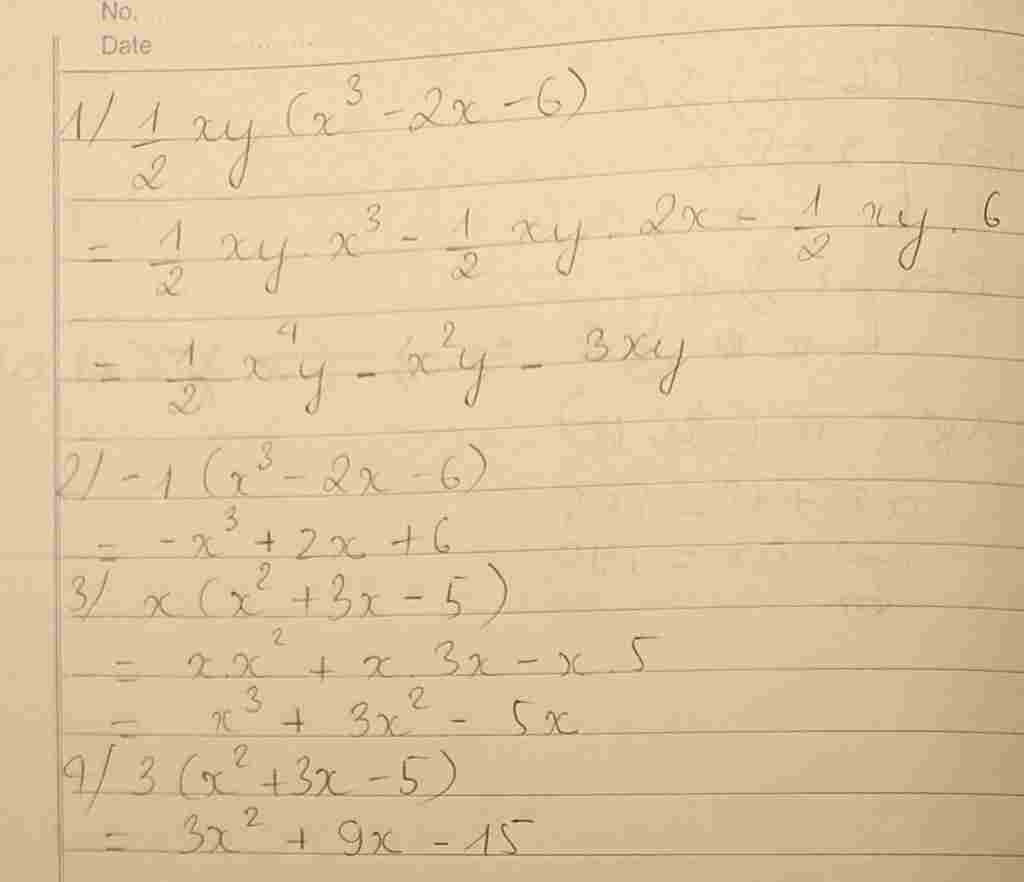 No.
Date
1/ 1/2 xy (x³ - 2x - 6)
= 1/2 xy . x³ - 1/2 xy . 2x - 1/2 xy . 6
= 1/2 x⁴y - x²y - 3xy
2/ -1 (x³ - 2x - 6)
= -x³ + 2x + 6
3/ x (x² + 3x - 5)
= x.x² + x.3x - x.5
= x³ + 3x² - 5x
4/ 3 (x² + 3x - 5)
= 3x² + 9x - 15